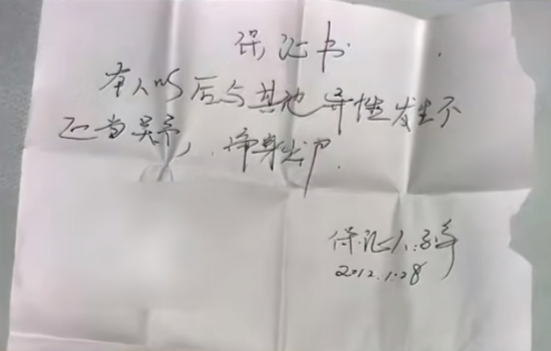 保证书
本人以后与其他异性发生不
正当关系,净身出户.
保证人:
2012.1.28